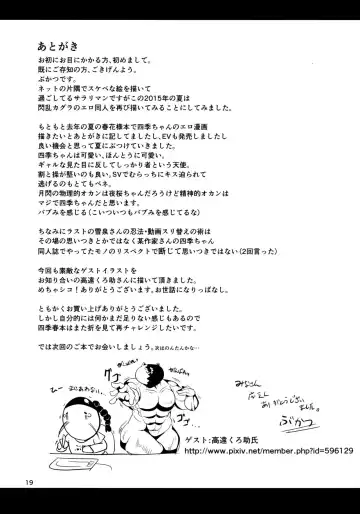 あとがき
お初にお目にかかる方、初めまして。
既にご存知の方、ごきげんよう。
ぶかつです。
ネットの片隅でスケベな絵を描いて
過ごしてるサラリマンですがこの2015年の夏は
閃乱カグラのエロ同人を再び描いてみることにしてみました。
もともと去年の夏の春花様本で四季ちゃんのエロ漫画
描きたいとあとがきに記してましたし、EVも発売しましたし
良い機会と思って夏にぶつけていきました。
四季ちゃんは可愛い。ほんとうに可愛い。
ギャルな見た目に反してしっかり者という天使。
割と操が堅いのも良い。SVでむらっちにキス迫られて
逃げるのもとてもベネ。
月閃の物理的オカンは夜桜ちゃんだろうけど精神的オカンは
マジで四季ちゃんだと思います。
バブみを感じる(こいついつもバブみを感じてるな)
ちなみにラストの雪泉さんの忍法・動画スリ替えの術は
その場の思いつきとかではなく某作家さんの四季ちゃん
同人誌でやってたモノのリスペクトで断じて思いつきではない(2回言った)
今回も素敵なゲストイラストを
お知り合いの高遠くろ助さんに描いて頂きました。
めちゃシコ!ありがとうございます。お世話になりっぱなし。
ともかくお買い上げありがとうございました。
しかし自分的には何かまだ足りない感じもあるので
四季春本はまた折を見て再チャレンジしたいです。
では次回のご本でお会いしましょう。次はのんたんかな…
ゴゴゴ
ゴゴゴ…
みなさん
ありがとうございました。
ぶかつ
ゲスト:高遠くろ助氏
http://www.pixiv.net/member.php?id=596129
19